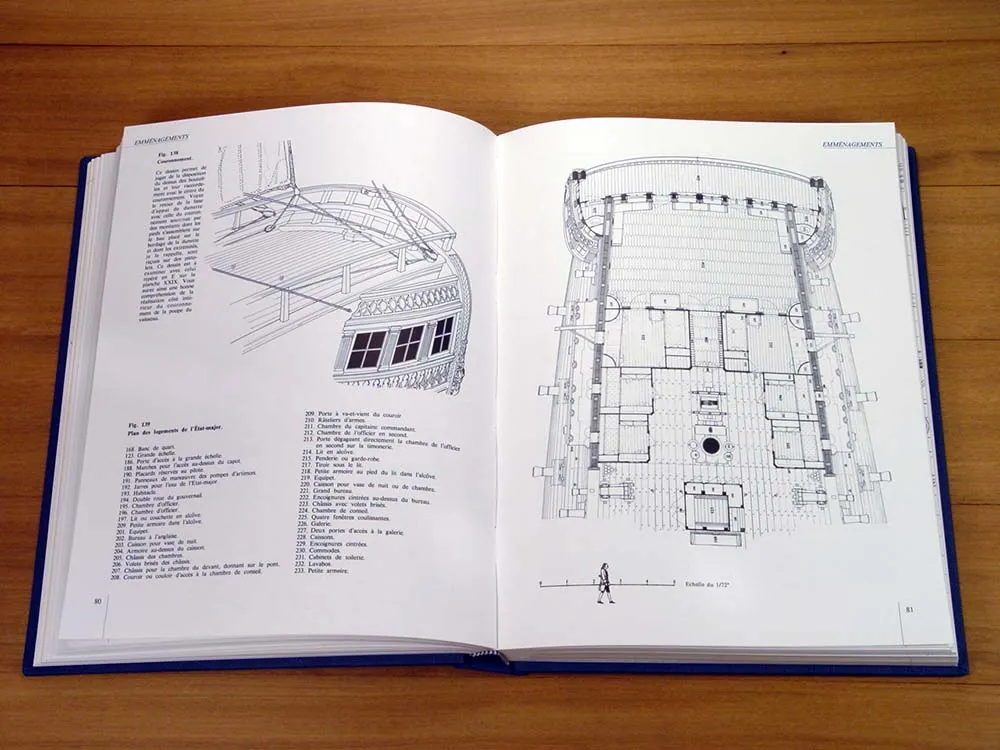 EMMÉNAGEMENTS
Fig. 138
Couronnement.
Ce dessin permet de
juger de la disposition
du dessus des bouteil-
les et leur raccorde-
ment avec le centre du
couronnement. Voyez
le retour de la lisse
d'appui de dunette
avec celle du couron-
nement soutenue par
des montants dont les
pieds s'assemblent sur
le bau placé sur le
bordage de la dunette
et dont les extrémités,
je le rappelle, sont
reçues sur des pata-
lets. Ce dessin est à
examiner avec celui
repéré en E sur la
planche XXIX. Vous
aurez ainsi une bonne
compréhension de la
réalisation côté inté-
rieur du couronne-
ment de la poupe du
vaisseau.
Fig. 139
Plan des logements de l'État-major.
168. Banc de quart.
123. Grande échelle.
186. Porte d'accès à la grande échelle.
188. Marches pour l'accès au-dessus du capot.
190. Placards réservés au pilote.
191. Panneaux de manœuvre des pompes d'artimon.
192. Jarres pour l'eau de l'État-major
193. Habitacle.
194. Double roue du gouvernail.
195. Chambre d'officier.
196. Chambre d'officier.
197. Lit ou couchette en alcôve.
209. Petite armoire dans l'alcôve.
201. Equipet.
202. Bureau à l'anglaise.
203. Caisson pour vase de nuit.
204. Armoire au-dessus du caisson.
205. Châssis des chambres.
206. Volets brisés des châssis.
207. Châssis pour la chambre du devant, donnant sur le pont.
208. Couroir ou couloir d'accès à la chambre de conseil.
209. Porte à va-et-vient du couroir
210. Râteliers d'armes.
211. Chambre du capitaine commandant.
212. Chambre de l'officier en second.
213. Porte dégageant directement la chambre de l'officier
en second sur la timonerie.
214. Lit en alcôve.
215. Penderie ou garde-robe.
217. Tiroir sous le lit.
218. Petite armoire au pied du lit dans l'alcôve.
219. Equipet.
220. Caisson pour vase de nuit ou de chambre.
221. Grand bureau.
222. Encoignures cintrées au-dessus du bureau.
223. Châssis avec volets brisés.
224. Chambre de conseil.
225. Quatre fenêtres coulissantes.
226. Galerie.
227. Deux portes d'accès à la galerie.
228. Caissons.
229. Encoignures cintrées.
230. Commodes.
231. Cabinets de toilette.
232. Lavabos.
233. Petite armoire.
80
EMMÉNAGEMENTS
Echelle du 1/72°
81